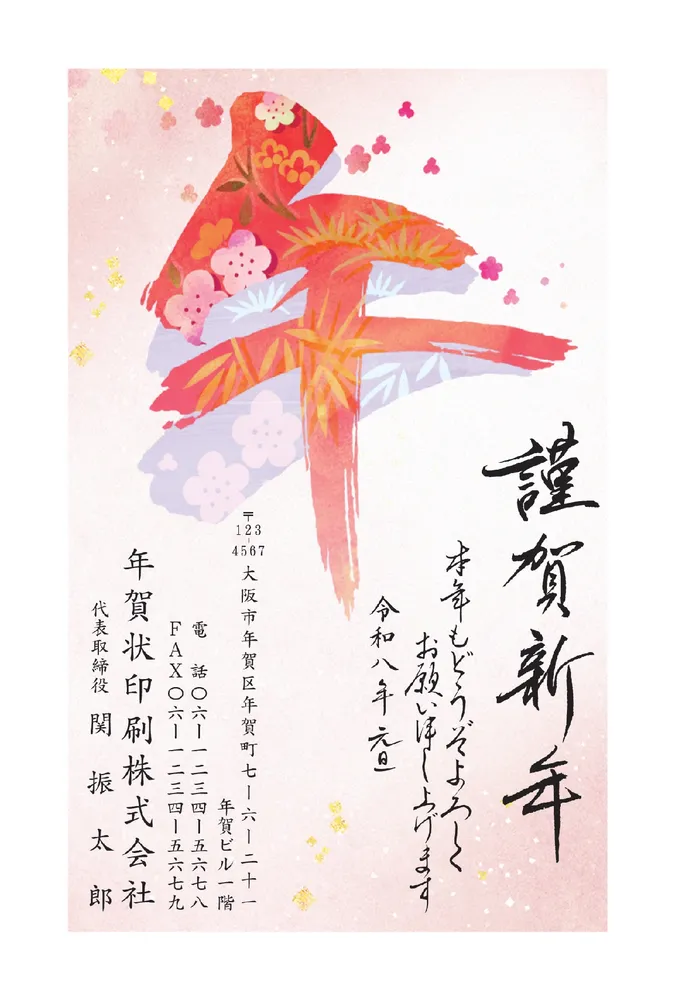 午
謹賀新年
本年もどうぞよろしく
お願い申し上げます
令和八年 元旦
〒123-4567 大阪市年賀区年賀町七ー六ー二十一
年賀ビル一階
電 話〇六ー一二三四ー五六七八
FAX〇六ー一二三四ー五六七九
年賀状印刷株式会社
代表取締役 関 振 太 郎